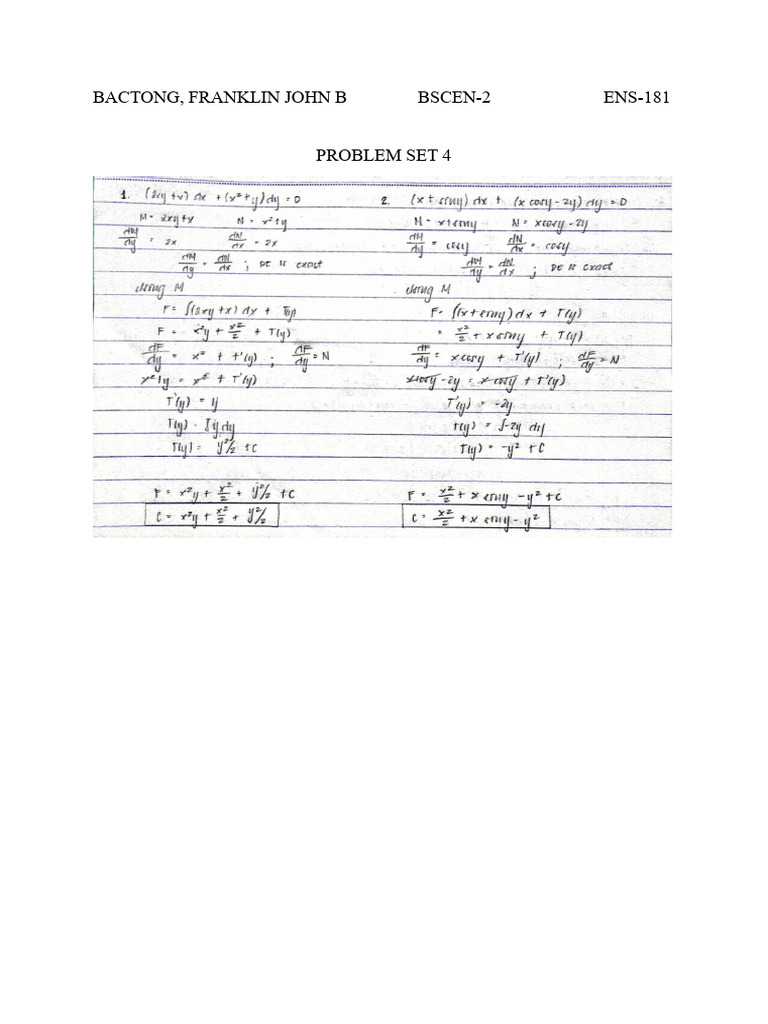 BACTONG, FRANKLIN JOHN B BSCEN-2 ENS-181
PROBLEM SET 4
1. (2xy + x) dx + (x² + y) dy = 0
M = 2xy + x N = x² + y
dM/dy = 2x dN/dx = 2x
dM/dy = dN/dx ; DE is exact
using M
F = ∫(2xy + x) dx + T(y)
F = x²y + x²/2 + T(y)
dF/dy = x² + T'(y) ; dF/dy = N
x² + y = x² + T'(y)
T'(y) = y
T(y) = ∫y dy
T(y) = y²/2 + C
F = x²y + x²/2 + y²/2 + C
C = x²y + x²/2 + y²/2
2. (x + siny) dx + (x cosy - 2y) dy = 0
M = x + siny N = x cosy - 2y
dM/dy = cosy dN/dx = cosy
dM/dy = dN/dx ; DE is exact
using M
F = ∫(x + siny) dx + T(y)
= x²/2 + x siny + T(y)
dF/dy = x cosy + T'(y) ; dF/dy = N
x cosy - 2y = x cosy + T'(y)
T'(y) = -2y
T(y) = ∫-2y dy
T(y) = -y² + C
F = x²/2 + x siny - y² + C
C = x²/2 + x siny - y²